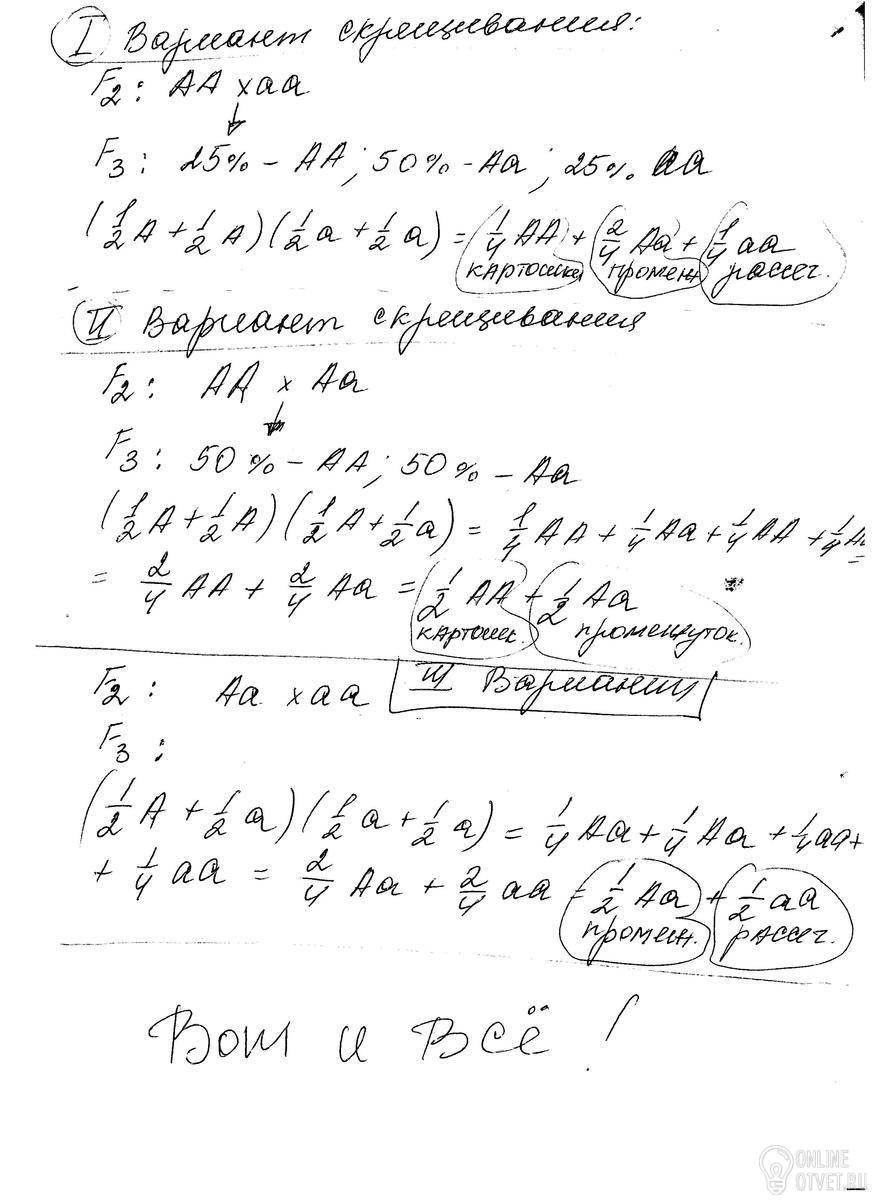 I Вариант скрещивания:
F2: AA x aa
F3: 25% - AA; 50% - Aa; 25% aa
(1/2 A + 1/2 A)(1/2 a + 1/2 a) = 1/4 AA + 2/4 Aa + 1/4 aa
картошка промеж рассеч.
II Вариант скрещивания
F2: AA x Aa
F3: 50% - AA; 50% - Aa
(1/2 A + 1/2 A)(1/2 A + 1/2 a) = 1/4 AA + 1/4 Aa + 1/4 AA + 1/4 Aa =
= 2/4 AA + 2/4 Aa = 1/2 AA + 1/2 Aa
картош. промежуток.
F2: Aa x aa III Вариант
F3:
(1/2 A + 1/2 a)(1/2 a + 1/2 a) = 1/4 Aa + 1/4 Aa + 1/4 aa +
+ 1/4 aa = 2/4 Aa + 2/4 aa = 1/2 Aa + 1/2 aa
промеж. рассеч.
Вот и Всё!
ONLINE
OTVET.RU